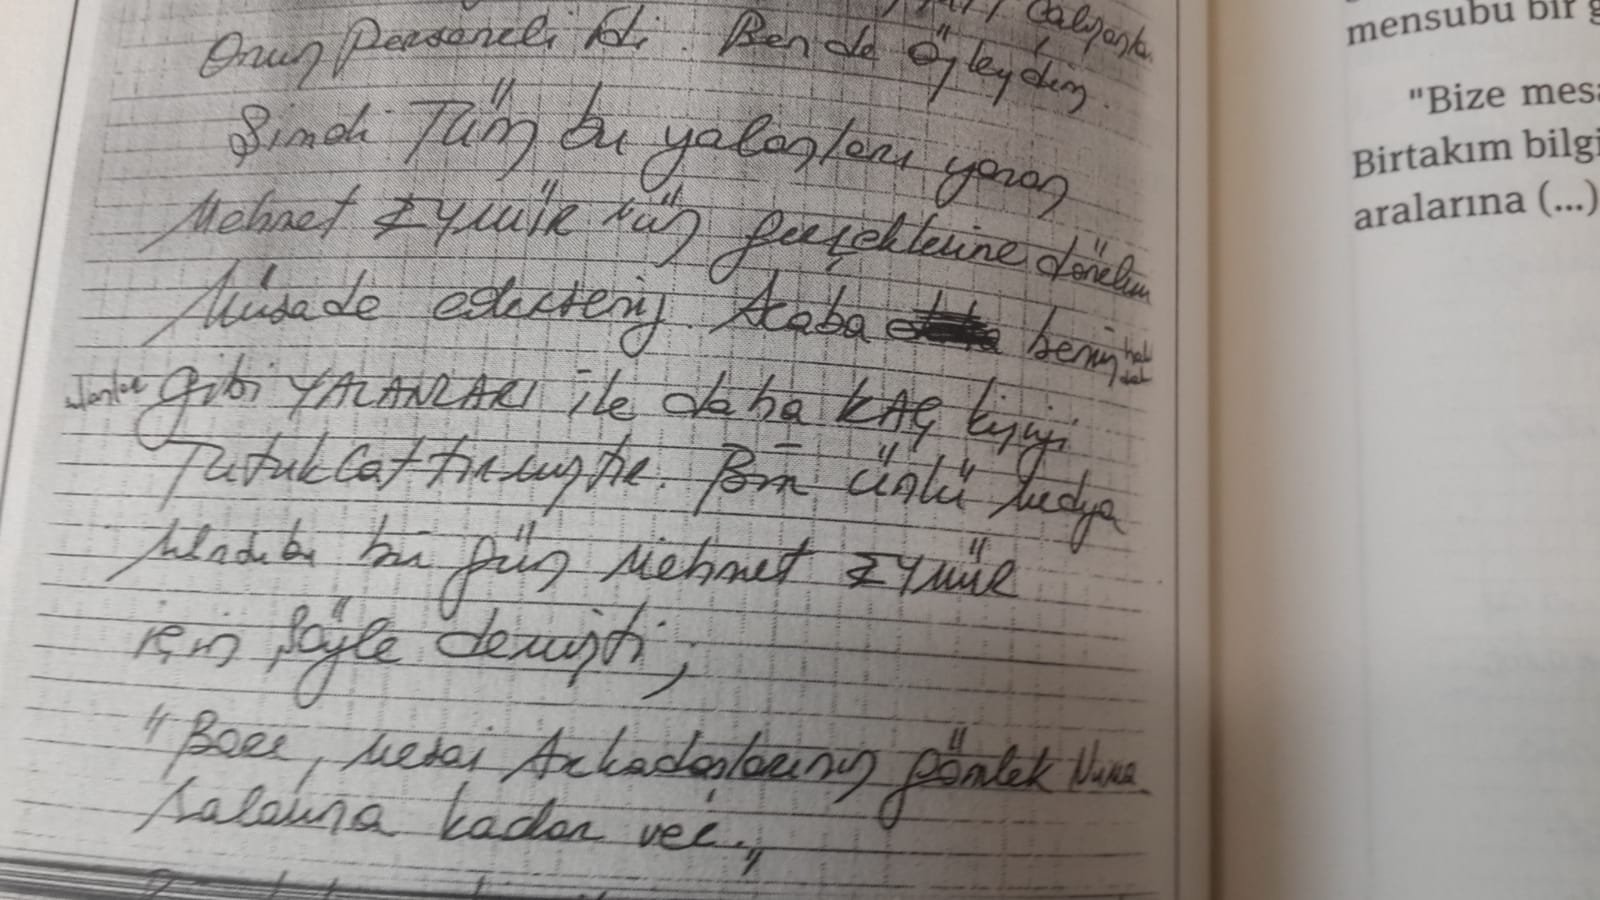 çalışanla
Onun Personeli idi. Ben de Öyleydim.
Şimdi Tüm bu yalanları yazan
Mehmet EYMÜR'ün gerçeklerine dönelim
Müsade ederseniz. Acaba benim hak
gibi YALANLARI ile daha KAÇ kişiyi
Tutuklattırmıştır. Bir ünlü Medya
Mensubu bir gün Mehmet EYMÜR
için şöyle demişti;
"Bize, Mesai Arkadaşlarının gömlek Numa
ralarına kadar ver."
mensubu bir g
"Bize mesa
Birtakım bilgi
aralarına (...)